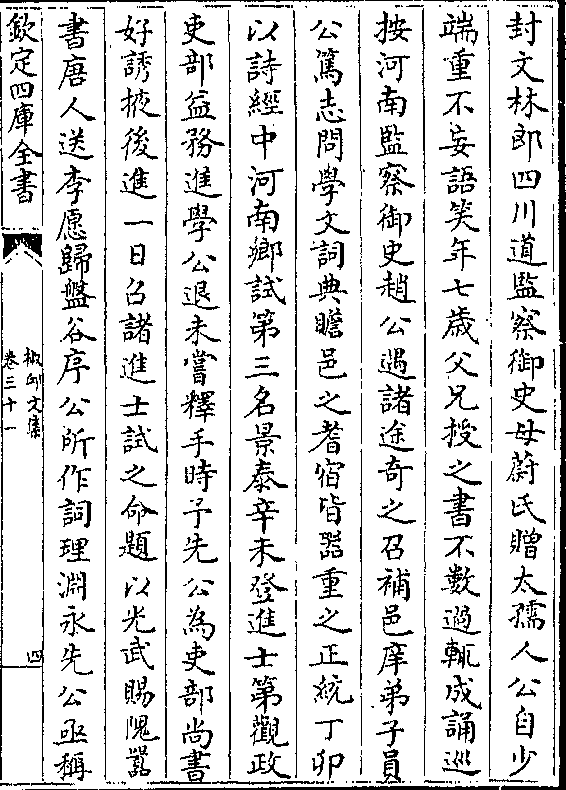 封文林郎四川道監察御史母蔚氏贈太孺人公自少
端重不妄語笑年七歲父兄授之書不數過輒成誦巡
按河南監察御史趙公遇諸途奇之召補邑庠弟子員
公篤志問學文詞典贍邑之耆宿皆器重之正統丁卯
以詩經中河南鄉試第三名景泰辛未登進士第觀政
吏部益務進學公退未嘗釋手時予先公為吏部尚書
好誘掖後進一日召諸進士試之命題以光武賜隗囂
書唐人送李愿歸盤谷序公所作詞理淵永先公亟稱
欽定四庫全書
椒邱文集
卷三十一
四